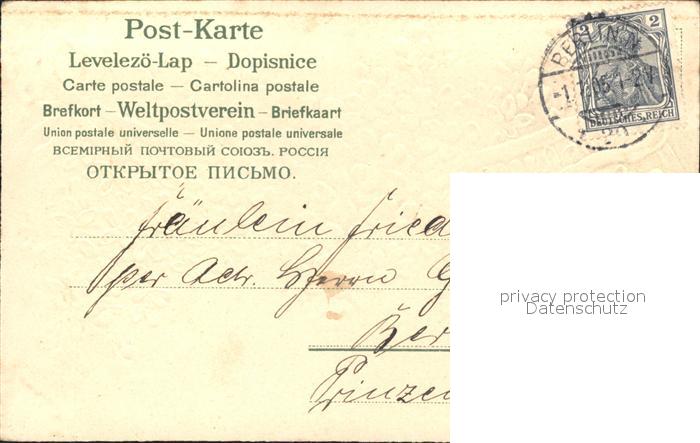 Post-Karte
Levelezö-Lap — Dopisnice
Carte postale — Cartolina postale
Brefkort — Weltpostverein — Briefkaart
Union postale universelle — Unione postale universale
ВСЕМІРНЫЙ ПОЧТОВЫЙ СОЮЗЪ. РОССІЯ
ОТКРЫТОЕ ПИСЬМО.
2 2
DEUTSCHES REICH
BERLIN N
Fräulein Fried
per Adr. Herrn G
Ber
Prinzen
privacy protection
Datenschutz